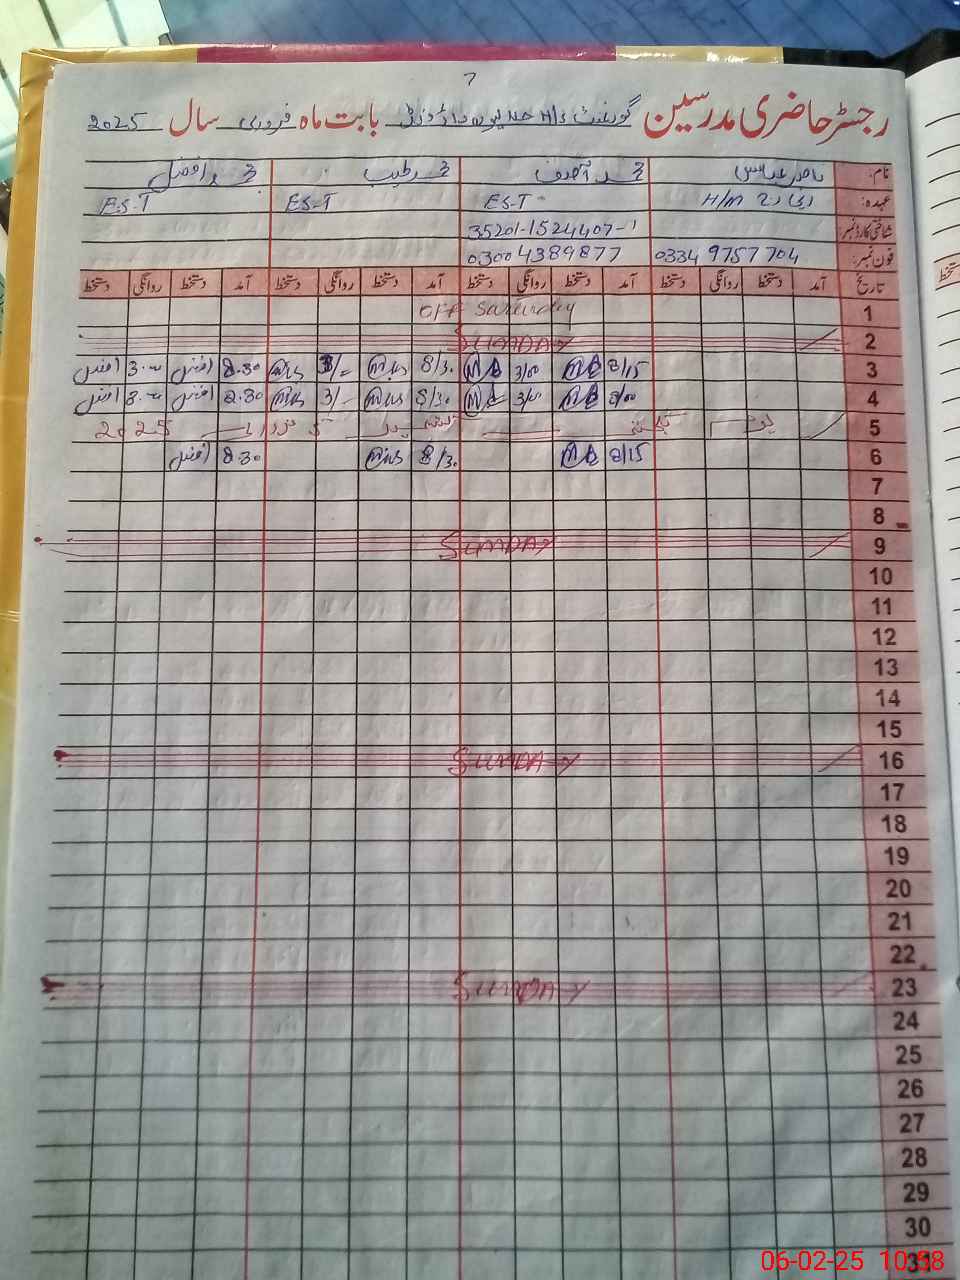 7
رجسٹر حاضری مدرسین گورنمنٹ H/S بابت ماہ فروری سال 2025
نام: ناصر عباس محمد آصف محمد طیب محمد افضل
عہدہ: انچارج H/M ES-T ES-T ES-T
شناختی کارڈ نمبر: 35201-1524407-1
فون نمبر: 0334 9757704 0300 4389877
تاریخ آمد دستخط روانگی دستخط آمد دستخط روانگی دستخط آمد دستخط روانگی دستخط آمد دستخط روانگی دستخط
1 OFF Saturday
2 SUNDAY
3 8/15 3/00 8/30 3/- 8.30 افضل 3.00 افضل
4 8/00 3/00 8/30 3/- 8.30 افضل 3.00 افضل
5 یوم یکجہتی کشمیر 2025
6 8/15 8/30 8.30 افضل
7
8
9 SUNDAY
10
11
12
13
14
15
16 SUNDAY
17
18
19
20
21
22
23 SUNDAY
24
25
26
27
28
29
30
31
06-02-25 10:58